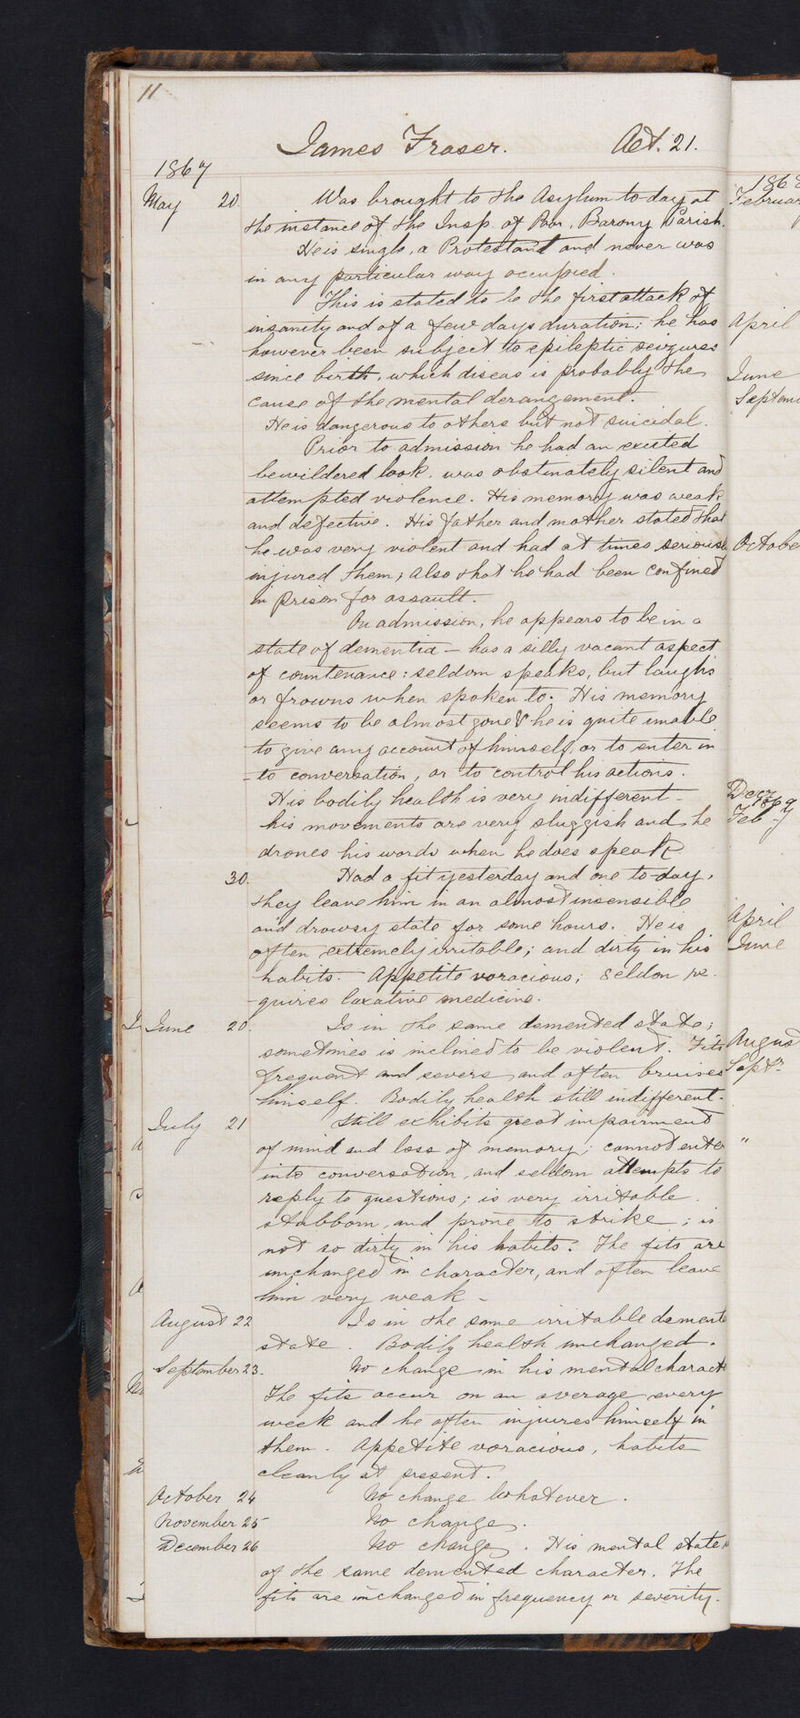 11
James Fraser. Aet. 21.
1867
May 20 Was brought to the Asylum to-day at
the instance of the Insp. of Poor, Barony Parish.
He is single, a Protestant and never was
in any particular way occupied.
This is stated to be the first attack of
insanity and of a few days duration; he has
however been subject to epileptic seizures
since birth, which diseas is probably the
cause of the mental derangement.
He is dangerous to others but not suicidal.
Prior to admission he had an excited
bewildered look, was obstinately silent and
attempted violence. His memory was weak
and defective. His father and mother stated that
he was very violent and had at times serious
injured them; also that he had been confined
in prison for assault.
On admission, he appears to be in a
state of dementia - has a silly vacant aspect
of countenance: seldom speaks, but laughs
or frowns when spoken to. His memory
seems to be almost gone & he is quite unable
to give any account of himself, or to enter in
-to conversation, or to control his actions.
His bodily health is very indifferent -
his movements are very sluggish and he
drones his words when he does speak
30. Had a fit yesterday and one to-day,
they leave him in an almost insensible
and drowsy state for some hours. He is
often extremely irritable; and dirty in his
habits. Appetite voracious; seldon re-
-quires laxative medicine.
June 20. Is in the same demented state;
sometimes is inclined to be violent. Fits
frequent and severe and often bruises
himself. Bodily health still indifferent.
July 21 Still exhibits great impairment
of mind and loss of memory; cannot ente
into conversation, and seldom attempts to
reply to questions; is very irritable,
stubborn, and prone to strike; is
not so dirty in his habits. The fits are
unchanged in character, and often leave
him very weak -
August 22 Is in the same irritable dement
state. Bodily health unchanged.
September 23. No change in his mental charact
The fits occur on an average every
week and he often injures himself in
them. Appetite voracious, habits
cleanly at present.
October 24 No change whatever.
November 25 No change.
December 26 No change. His mental state
of the same demented character. The
fits are unchanged in frequency or severity.
186
Februar
April
June
Septem
Octobe
Decr
Feb
April
June
August
Septr
"